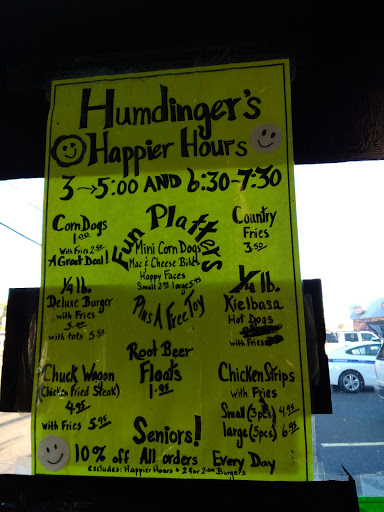 Humdinger's
Happier Hours
3→5:00 AND 6:30-7:30
Corn Dogs
1.00
With Fries 2.50
A Great Deal!
Fun Platters
Mini Corn Dogs
Mac & Cheese Bites
Happy Faces
Small 2.50
Plus A Free Toy
Country
Fries
3.50
1/4 lb.
Deluxe Burger
with Fries
5.00
with tots 5.50
1/4 lb.
Kielbasa
Hot Dogs
with Fries
Root Beer
Floats
1.95
Chuck Wagon
(Chicken Fried Steak)
4.95
with Fries 5.95
Chicken Strips
with Fries
Small (3pcs) 4.95
large (5pcs) 6.95
Seniors!
10% off All orders Every Day
excludes: Happier Hours + 2 for 2.00 Burgers